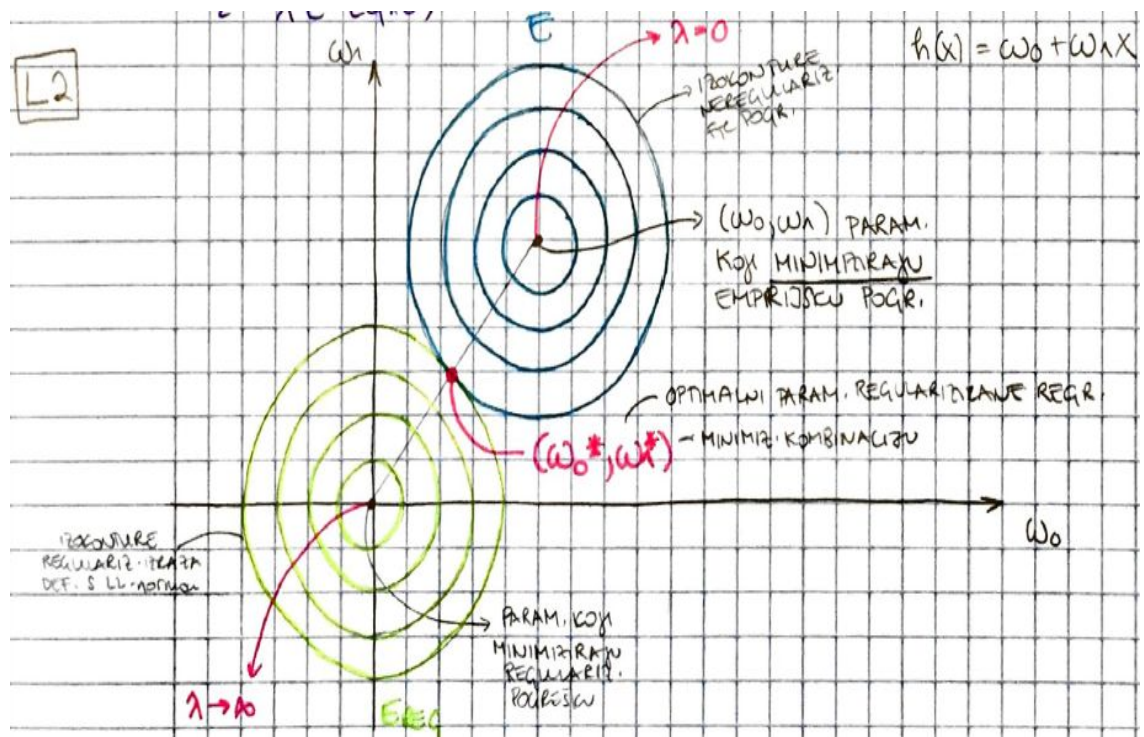 E
λ=0
h(x) = ω0 + ω1X
ω1
L2
IZOKONTURE
NEREGULARIZ.
POGR.
(ω0,ω1) PARAM.
KOJI MINIMIZIRAJU
EMPIRIJSKU POGR.
OPTIMALNI PARAM. REGULARIZIRANE REGR.
(ω0*,ω1*) - MINIMIZ. KOMBINACIJU
ω0
IZOKONTURE
REGULARIZ. IZRAZA
DEF. S L2-normom
PARAM. KOJI
MINIMIZIRAJU
REGULARIZ.
POGREŠKU
λ→∞
EREG